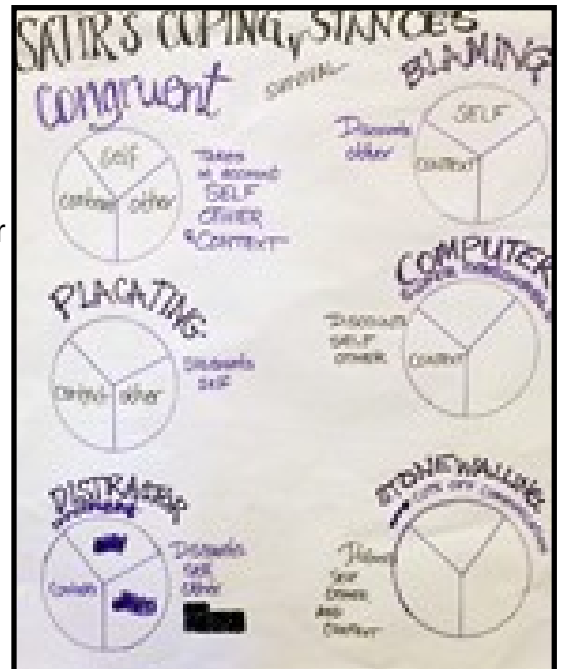 SATIR'S COPING STANCES
SURVIVAL
Congruent
Self
context other
TAKES
IN ACCOUNT
SELF
OTHER
& CONTEXT
BLAMING
Discounts
other
SELF
CONTEXT
PLACATING
context other
Discounts
SELF
COMPUTER
DISCOUNTS
SELF
OTHER
CONTEXT
Context
Discounts
SELF
other
STONEWALLING
CUTS OFF COMMUNICATION
SELF
OTHER
AND
CONTEXT
r